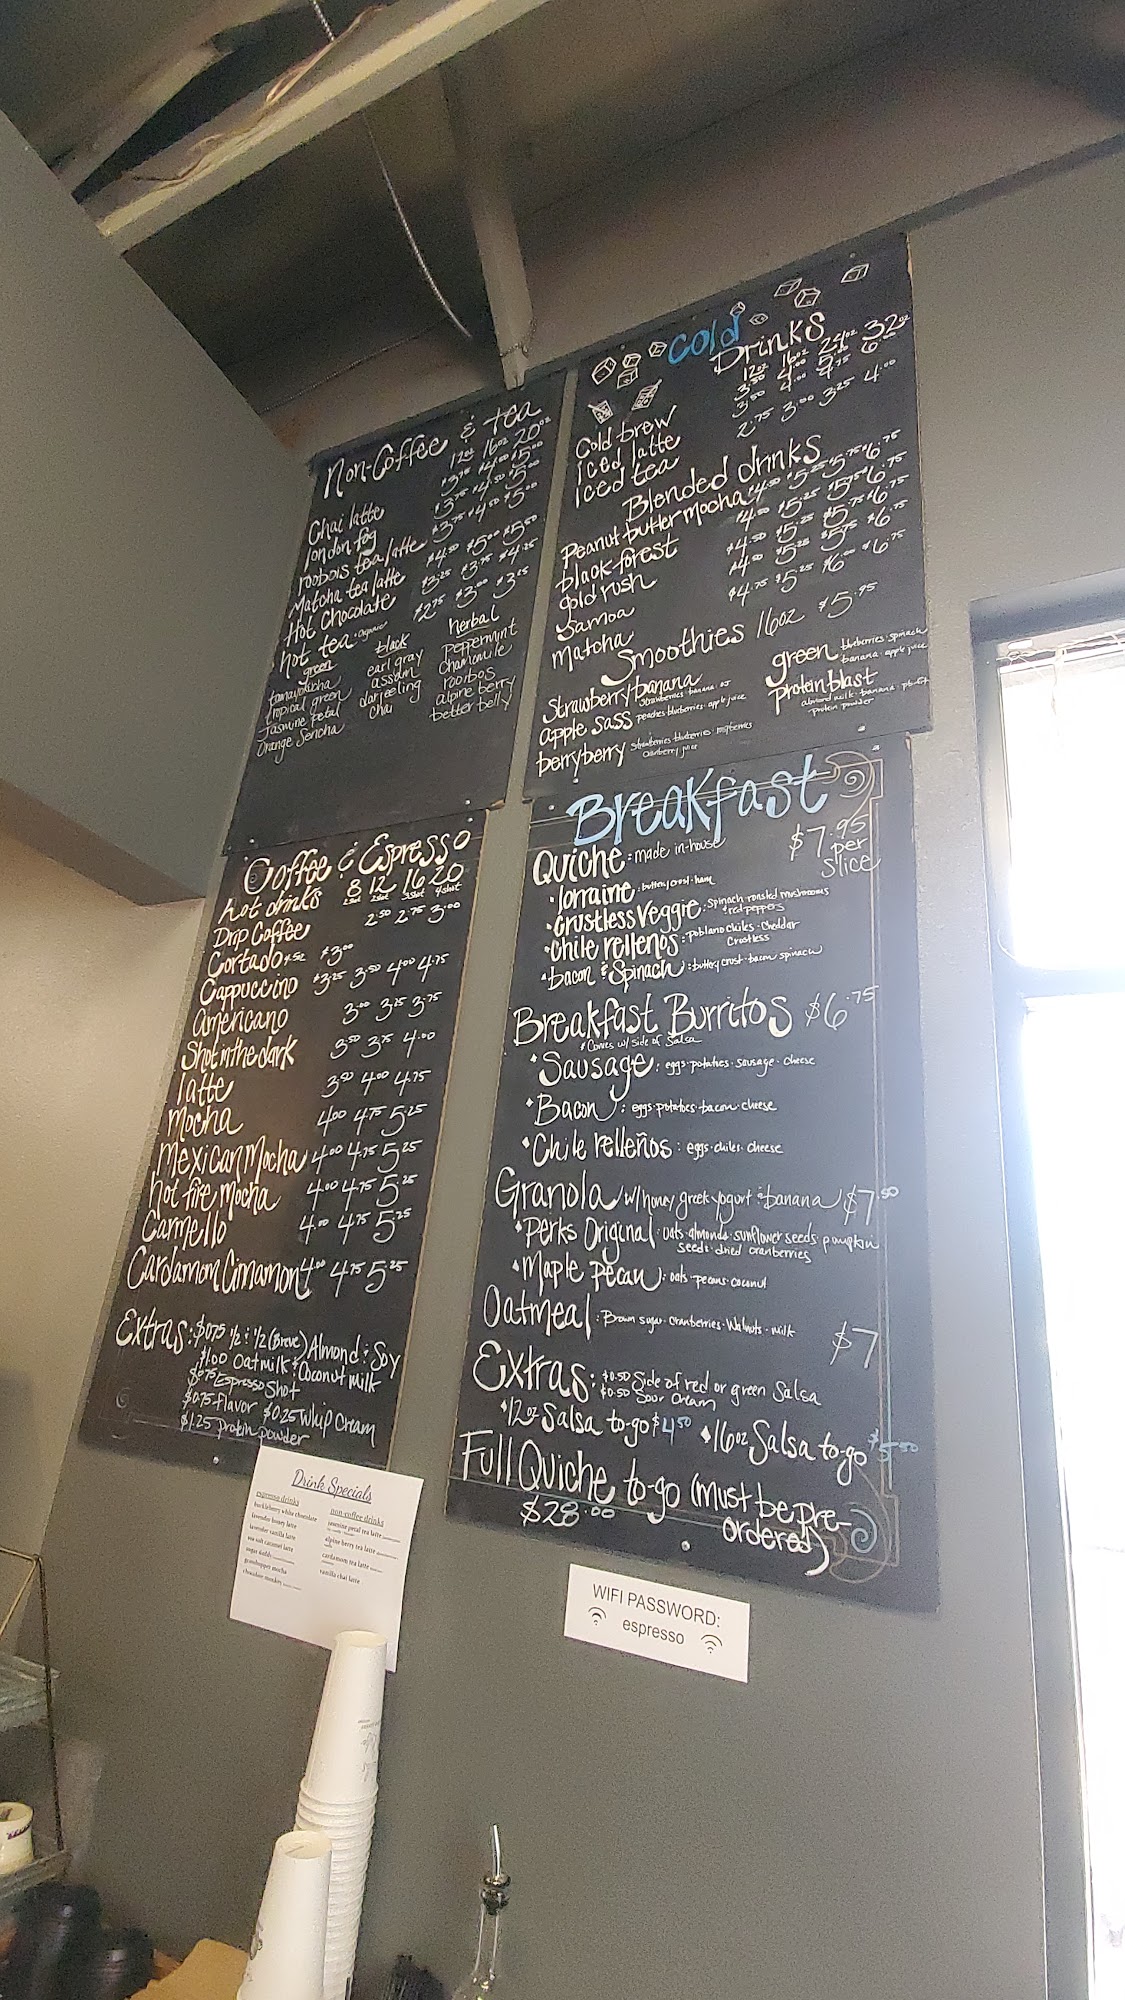 Non-Coffee & tea
12oz 16oz 20oz
Chai latte $3.75 $4.50 $5.00
london fog $3.75 $4.50 $5.00
roobois tea latte $3.75 $4.50 $5.00
Matcha tea latte $4.50 $5.00 $5.50
Hot Chocolate $3.25 $3.75 $4.25
hot tea · organic $2.75 $3.00 $3.25
green black herbal
tamayokucha earl gray peppermint
tropical green assam chamomile
Jasmine petal darjeeling rooibos
Orange Sencha chai alpine berry
better belly
Cold
Drinks
12oz 16oz 24oz 32oz
Cold brew 3.50 4.00 5.00 6.00
Iced latte 3.50 4.00 4.75
Iced tea 2.75 3.00 3.25 4.00
Blended drinks
Peanut butter mocha $4.50 $5.25 $5.75 $6.75
black forest $4.50 $5.25 $5.75 $6.75
gold rush $4.50 $5.25 $5.75 $6.75
Samoa $4.50 $5.25 $5.75 $6.75
Matcha $4.75 $5.25 $6.00 $6.75
Smoothies 16oz $5.95
Strawberry banana strawberries · banana · oj
apple sass peaches · blueberries · apple juice
berryberry strawberries blueberries raspberries
cranberry juice
green blueberries · spinach
banana · apple juice
Protein blast
almond milk · banana · pb
Protein powder
Coffee & Espresso
hot drinks 8 12 16 20
2shot 3shot 4shot
Drip Coffee 2.50 2.75 3.00
Cortado $3.00
Cappuccino $3.25 3.50 4.00 4.75
Americano 3.00 3.25 3.75
Shot in the dark 3.50 3.75 4.00
latte 3.50 4.00 4.75
Mocha 4.00 4.75 5.25
Mexican Mocha 4.00 4.75 5.25
hot fire mocha 4.00 4.75 5.25
Carmello 4.00 4.75 5.25
Cardamom Cinamon 4.00 4.75 5.25
Extras: $0.75 1/2 & 1/2 (Breve) Almond & Soy
$1.00 Oatmilk & Coconut milk
$0.75 Espresso Shot
$0.75 Flavor $0.25 Whip Cream
$1.25 protein powder
Breakfast
Quiche: made in-house $7.95
per
slice
· lorraine: buttery crust · ham
· crustless Veggie: spinach · roasted mushrooms
red peppers
· Chile rellenos: poblano chiles · cheddar
Crustless
· bacon & Spinach: buttery crust · bacon · spinach
Breakfast Burritos $6.75
* Comes w/ side of Salsa
· Sausage: eggs · potatoes · sausage · cheese
· Bacon: eggs · potatoes · bacon · cheese
· Chile relleños: eggs · chiles · cheese
Granola w/ honey greek yogurt & banana $7.50
· Perks Original: oats · almonds · sunflower seeds · pumpkin
seeds · dried cranberries
· Maple pecan: oats · pecans · coconut
Oatmeal: Brown sugar · cranberries · Walnuts · milk $7
Extras: $0.50 Side of red or green Salsa
$0.50 Sour Cream
· 12oz Salsa to-go $4.50 · 16oz Salsa to-go $5.50
Full Quiche to-go (must be pre-
$28.00 ordered)
Drink Specials
espresso drinks non-coffee drinks
huckleberry white chocolate
lavender honey latte
lavender vanilla latte
sea salt caramel latte
grasshopper mocha
chocolate monkey
jasmine petal tea latte
alpine berry tea latte
cardamom tea latte
vanilla chai latte
WIFI PASSWORD:
espresso